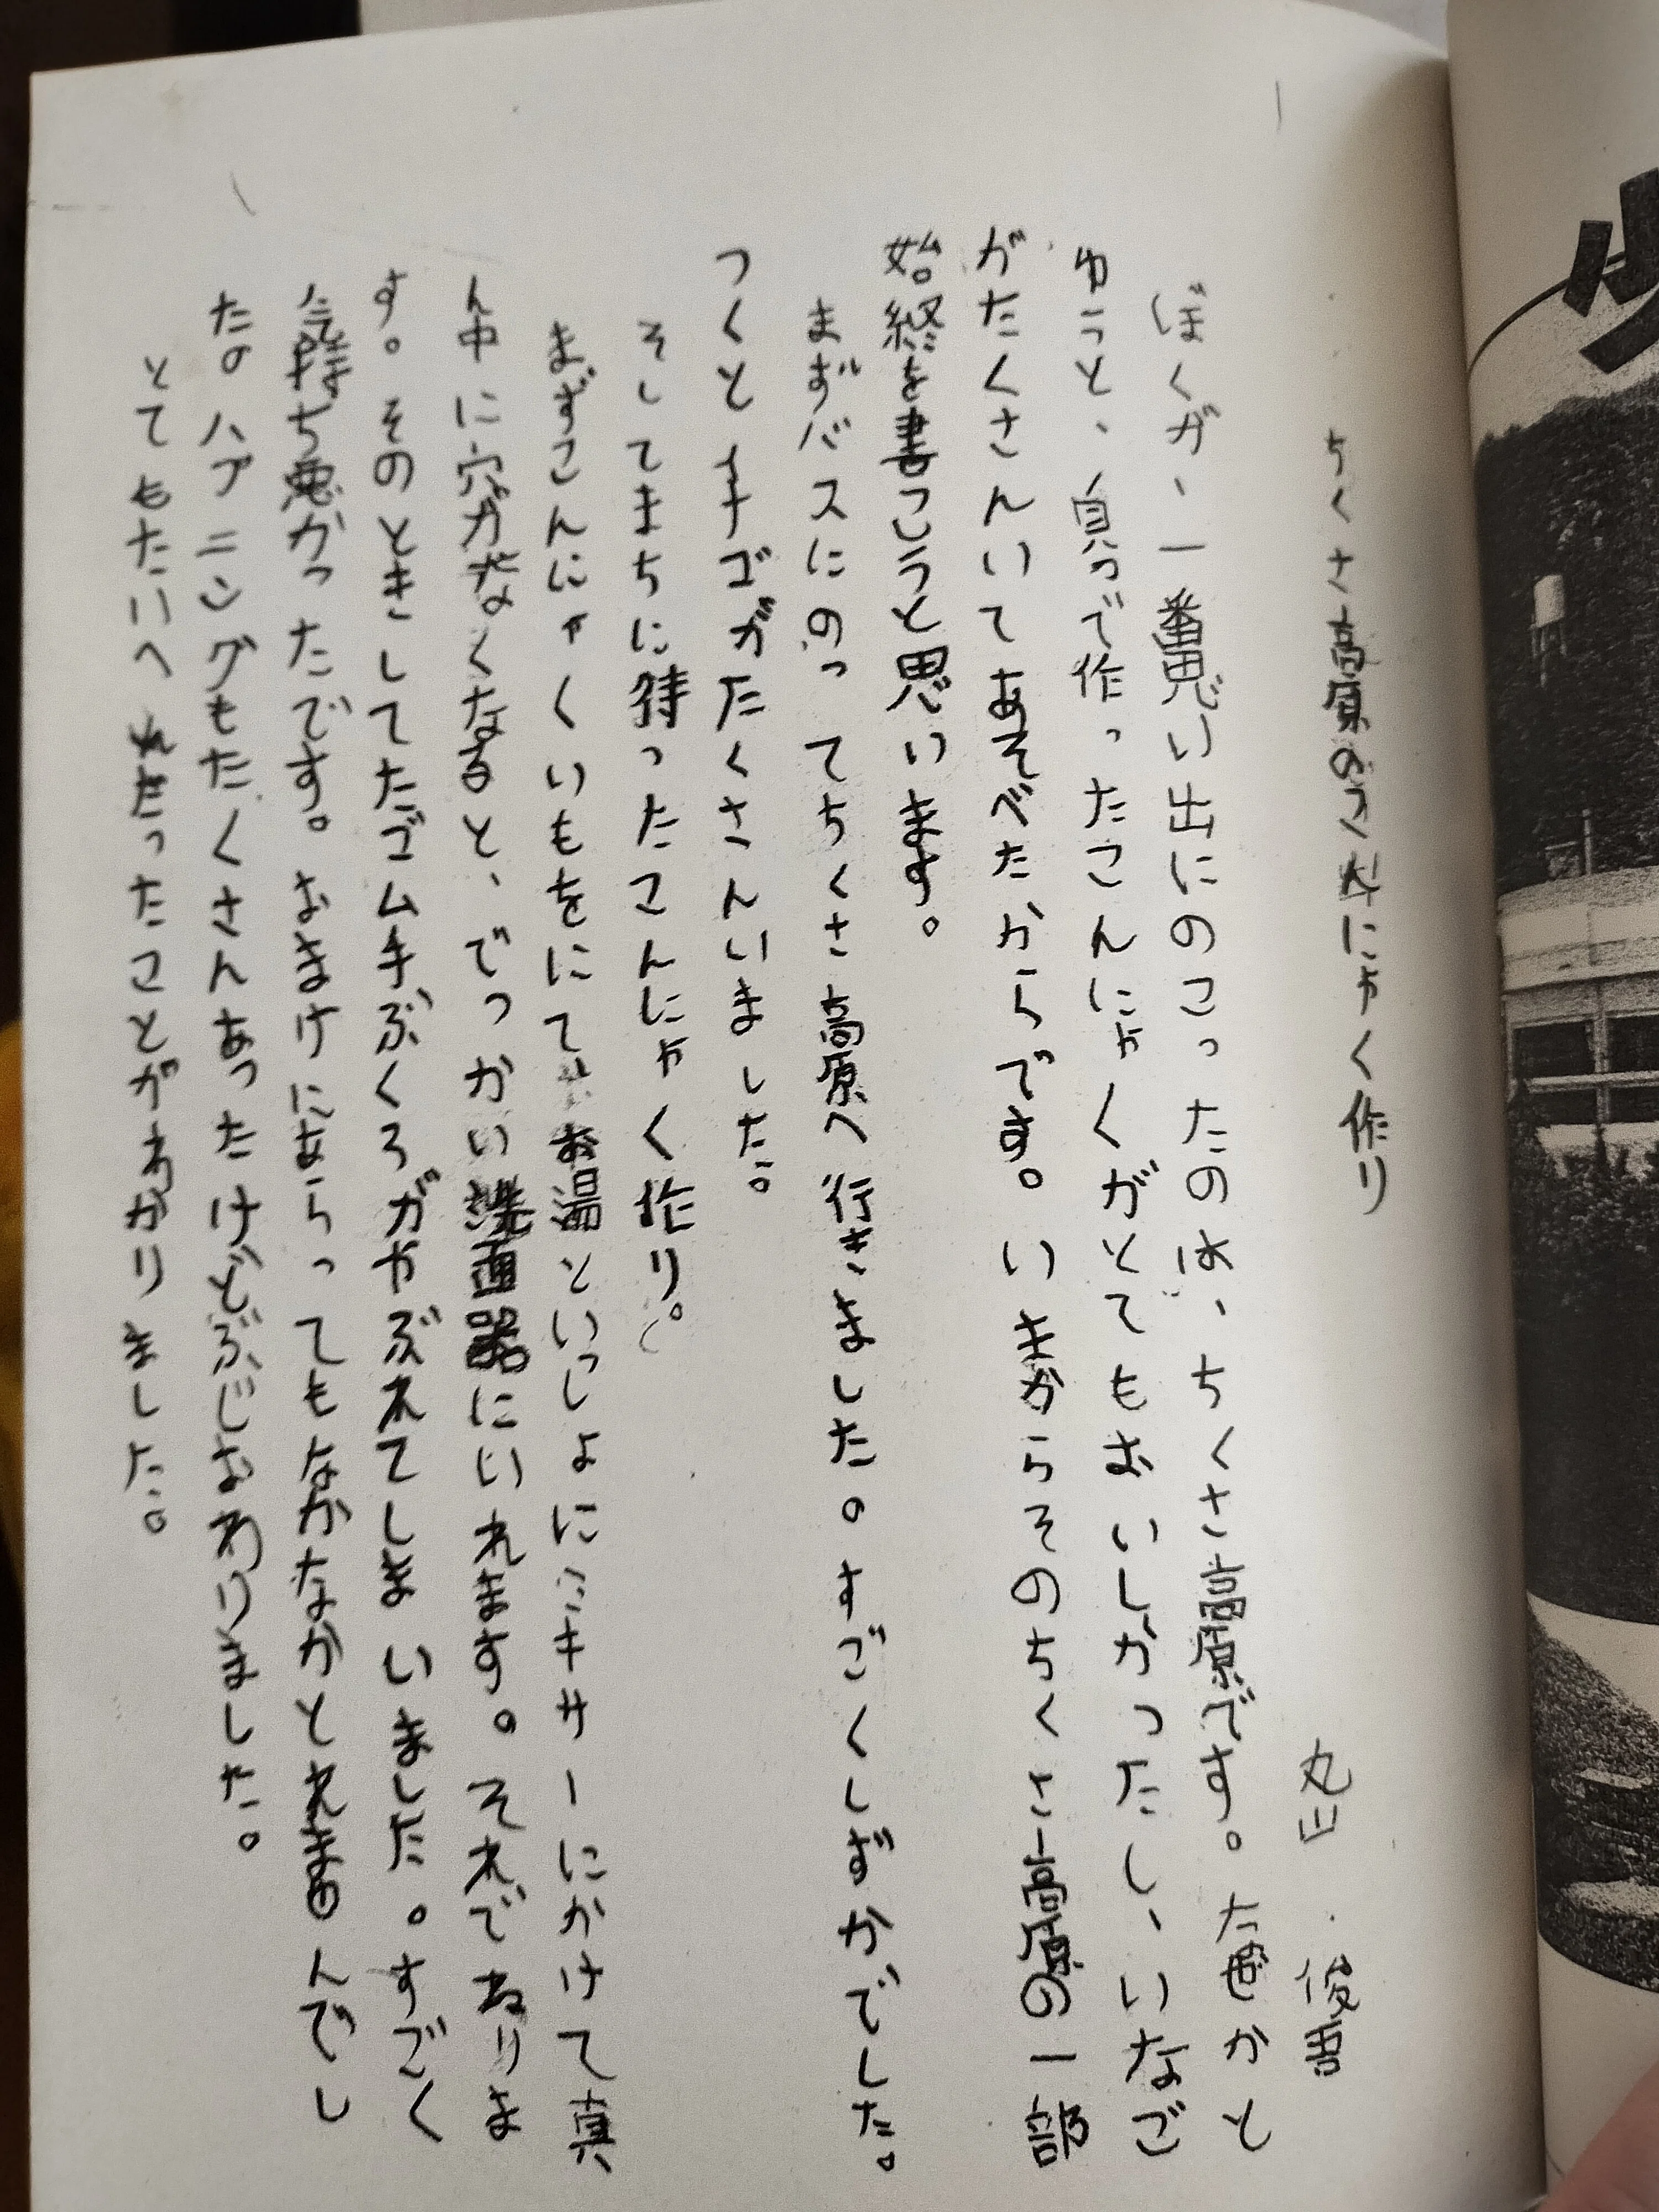 ちくさ高原のこんにゃく作り
丸山　俊吾
ぼくが、一番思い出にのこったのは、ちくさ高原です。なぜかと
ゆうと、自分で作ったこんにゃくがとてもおいしかったし、いなご
がたくさんいてあそべたからです。いまからそのちくさ高原の一部
始終を書こうと思います。
まずバスにのってちくさ高原へ行きました。すごくしずかでした。
つくとイナゴがたくさんいました。
そしてまちに待ったこんにゃく作り。
まずこんにゃくいもをにてお湯といっしょにミキサーにかけて真
ん中に穴がなくなると、でっかい洗面器にいれます。それでねりま
す。そのときしてたゴム手ぶくろがやぶれてしまいました。すごく
気持ち悪かったです。おまけにあらってもなかなかとれませんでし
たのハプニングもたくさんあったけどぶじおわりました。
とてもたいへんだったことがわかりました。